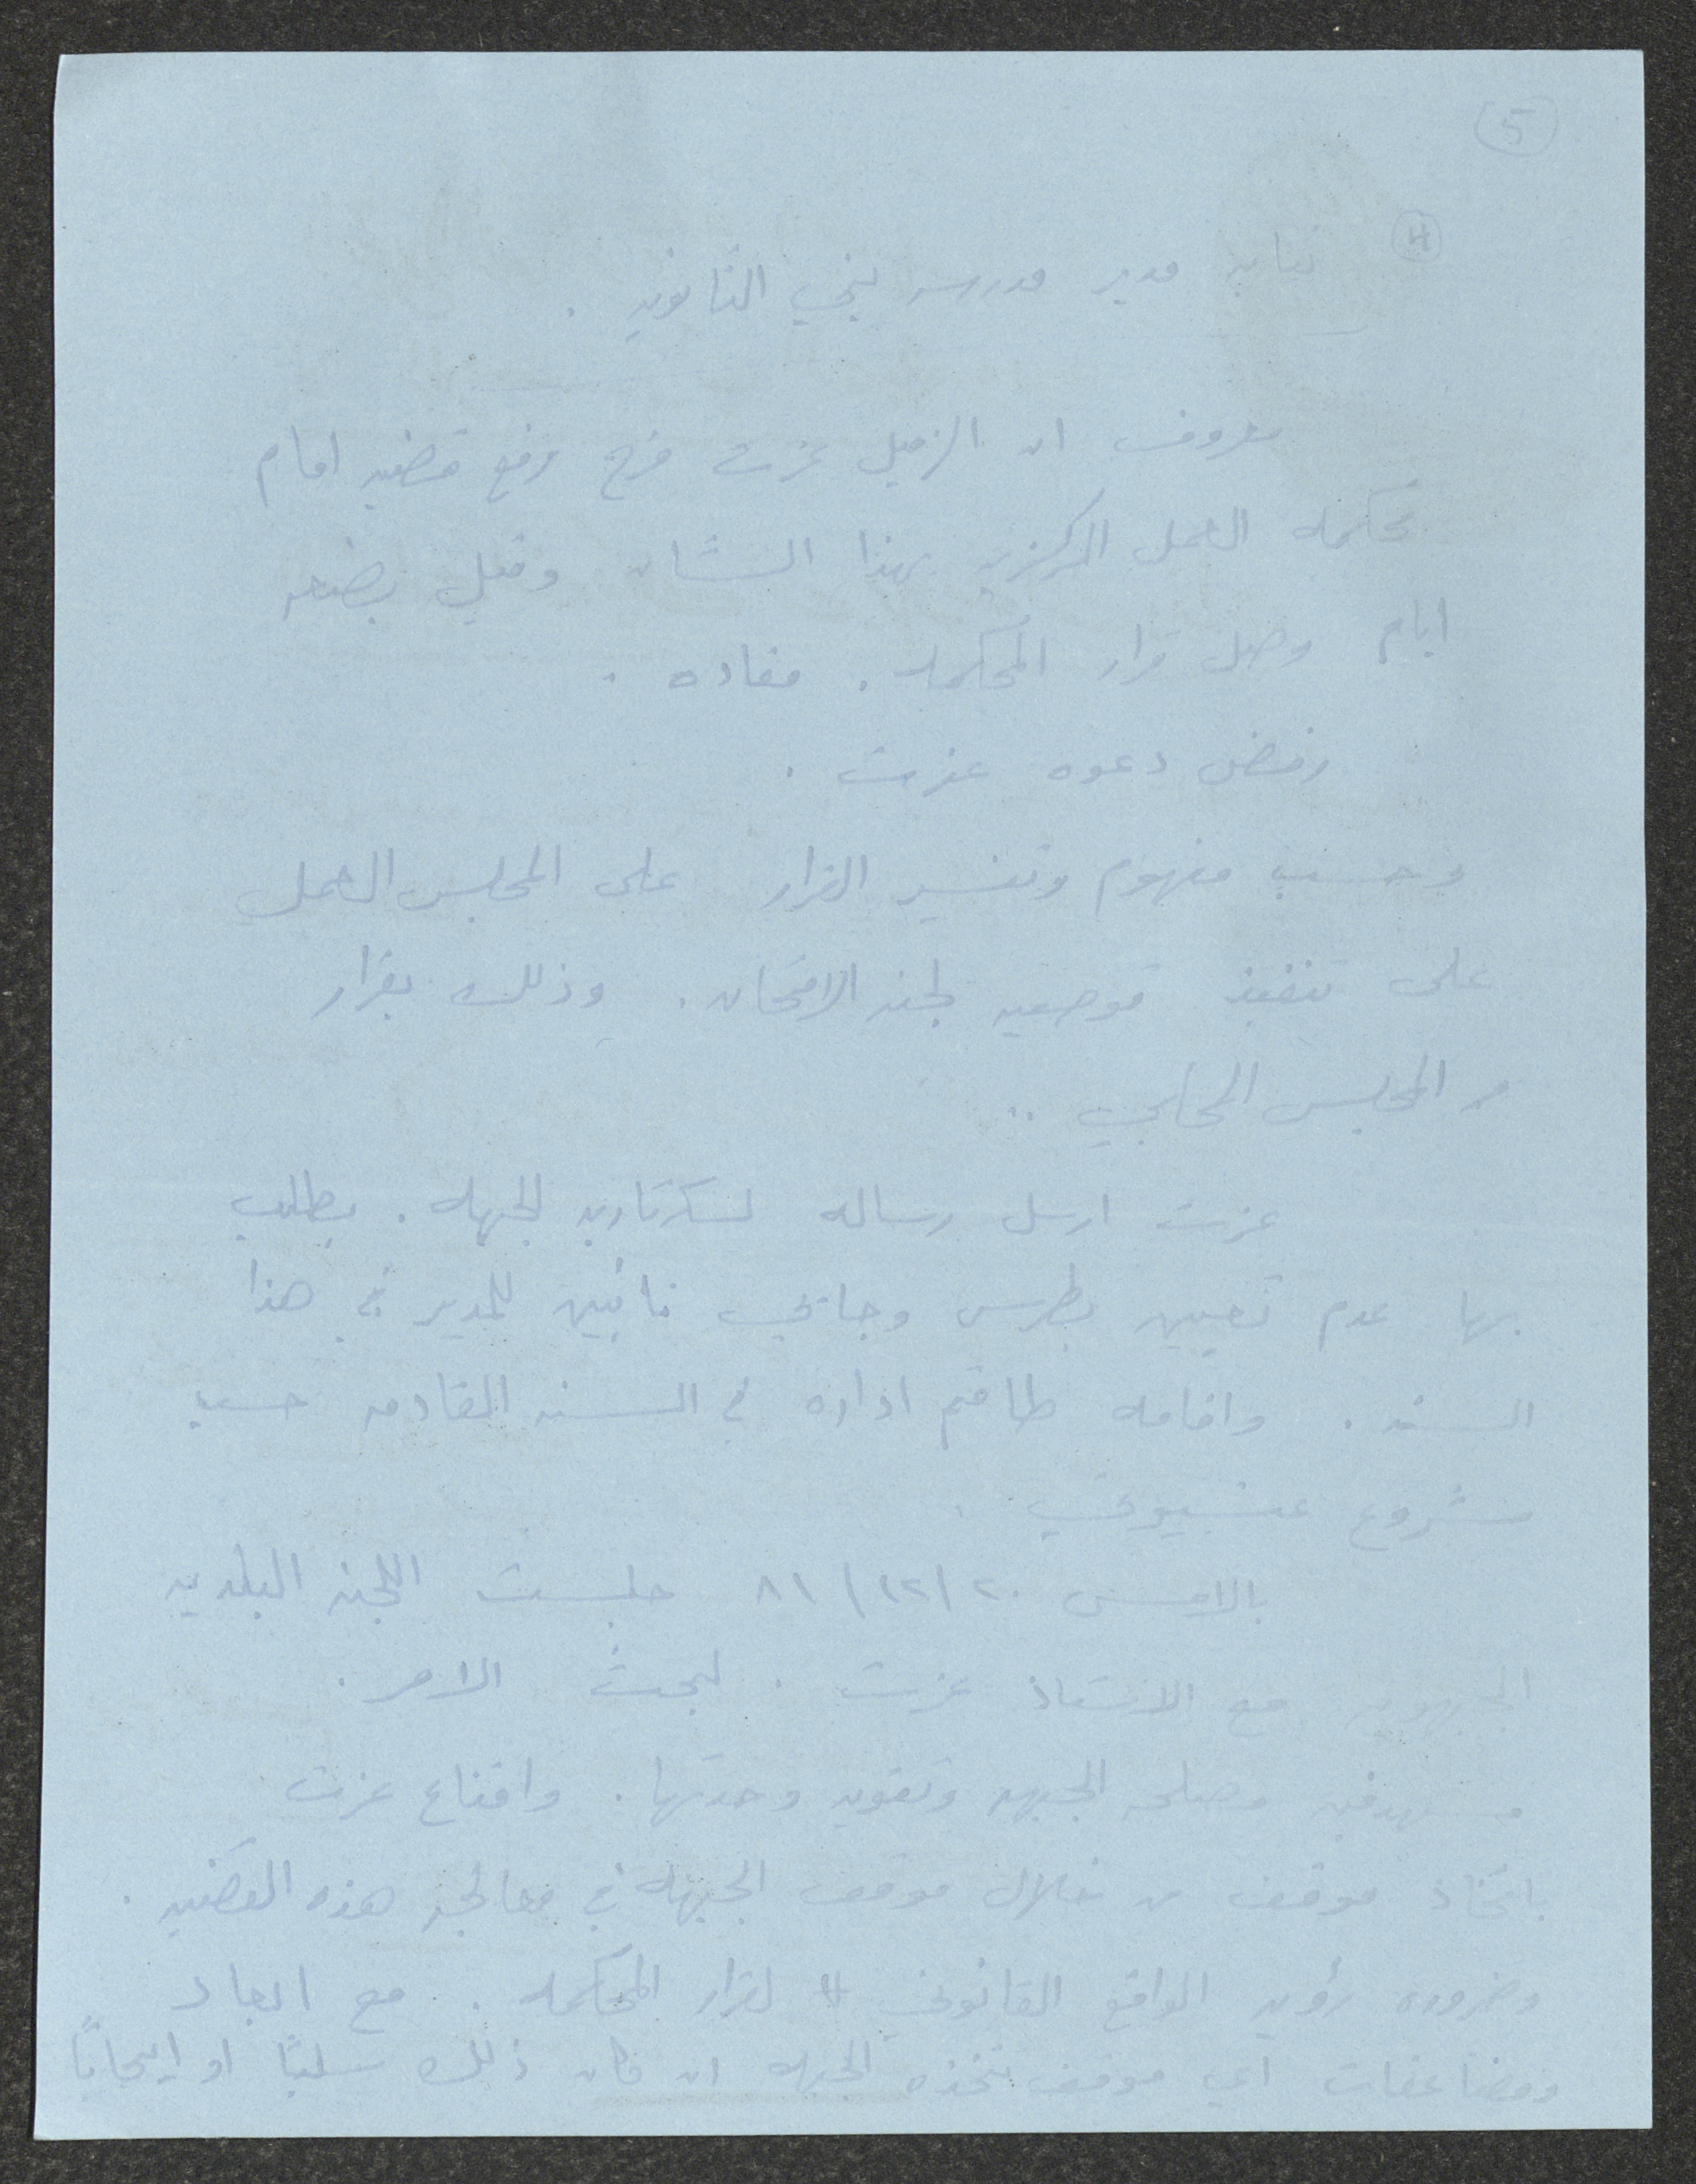 5
4 نيابه مدير مدرسه يني الثانويه .
معروف ان الزميل عزت فرح رفع قضيه امام
محكمه العمل المركزيه بهذا الشان وقبل بضعه
ايام وصل قرار المحكمه . مفاده .
رفض دعوه عزت .
وحسب مفهوم وتفسير القرار على المجلس العمل
على تنفيذ توصيه لجنه الامتحان . وذلك بقرار
المجلس المحلي ..
عزت ارسل رساله لسكرتاريه الجبهه . يطلب
بها عدم تعيين بطرس وجاني نائبين للمدير في هذا
السنه . واقامه طاقم اداره في السنه القادمه حسب
مشروع
بالامس ٢٠/١٢/٨١ جلست اللجنه البلديه
الجبهويه مع الاستاذ عزت . لبحث الامر .
مستهدفه مصلحه الجبهه وتقويه وحدتها . واقناع عزت
باتخاذ موقف من خلال موقف الجبهه في معالجه هذه القضيه .
وضروره رؤيه الواقع القانوني لقرار المحكمه . مع ابعاد
ومضاعفات اي موقف تتخذه الجبهه ان كان ذلك سلبًا او ايجابًا